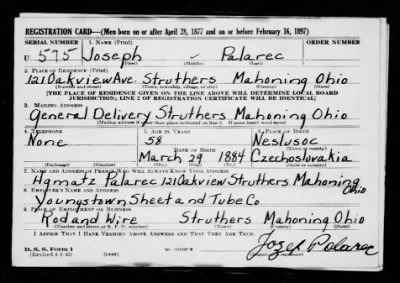 REGISTRATION CARD—(Men born on or after April 28, 1877 and on or before February 16, 1897)
SERIAL NUMBER 1. NAME (Print) ORDER NUMBER
U 575 Joseph - Palarec
(First) (Middle) (Last)
2. PLACE OF RESIDENCE (Print)
121 Oakview Ave. Struthers Mahoning Ohio
(Number and street) (Town, township, village, or city) (County) (State)
[THE PLACE OF RESIDENCE GIVEN ON THE LINE ABOVE WILL DETERMINE LOCAL BOARD
JURISDICTION; LINE 2 OF REGISTRATION CERTIFICATE WILL BE IDENTICAL]
3. MAILING ADDRESS
General Delivery Struthers Mahoning Ohio
[Mailing address if other than place indicated on line 2. If same insert word same]
4. TELEPHONE 5. AGE IN YEARS 6. PLACE OF BIRTH
None 58 Neslusoc
DATE OF BIRTH (Town or county)
March 29 1884 Czechoslovakia
(Exchange) (Number) (Mo.) (Day) (Yr.) (State or country)
7. NAME AND ADDRESS OF PERSON WHO WILL ALWAYS KNOW YOUR ADDRESS
Palarec 121 Oakview Struthers Mahoning
Ohio
8. EMPLOYER'S NAME AND ADDRESS
Youngstown Sheet and Tube Co
9. PLACE OF EMPLOYMENT OR BUSINESS
Rod and Wire Struthers Mahoning Ohio
(Number and street or R. F. D. number) (Town) (County) (State)
I AFFIRM THAT I HAVE VERIFIED ABOVE ANSWERS AND THAT THEY ARE TRUE.
D. S. S. Form 1
(Revised 4-1-42) (over)
Jozef Polarec